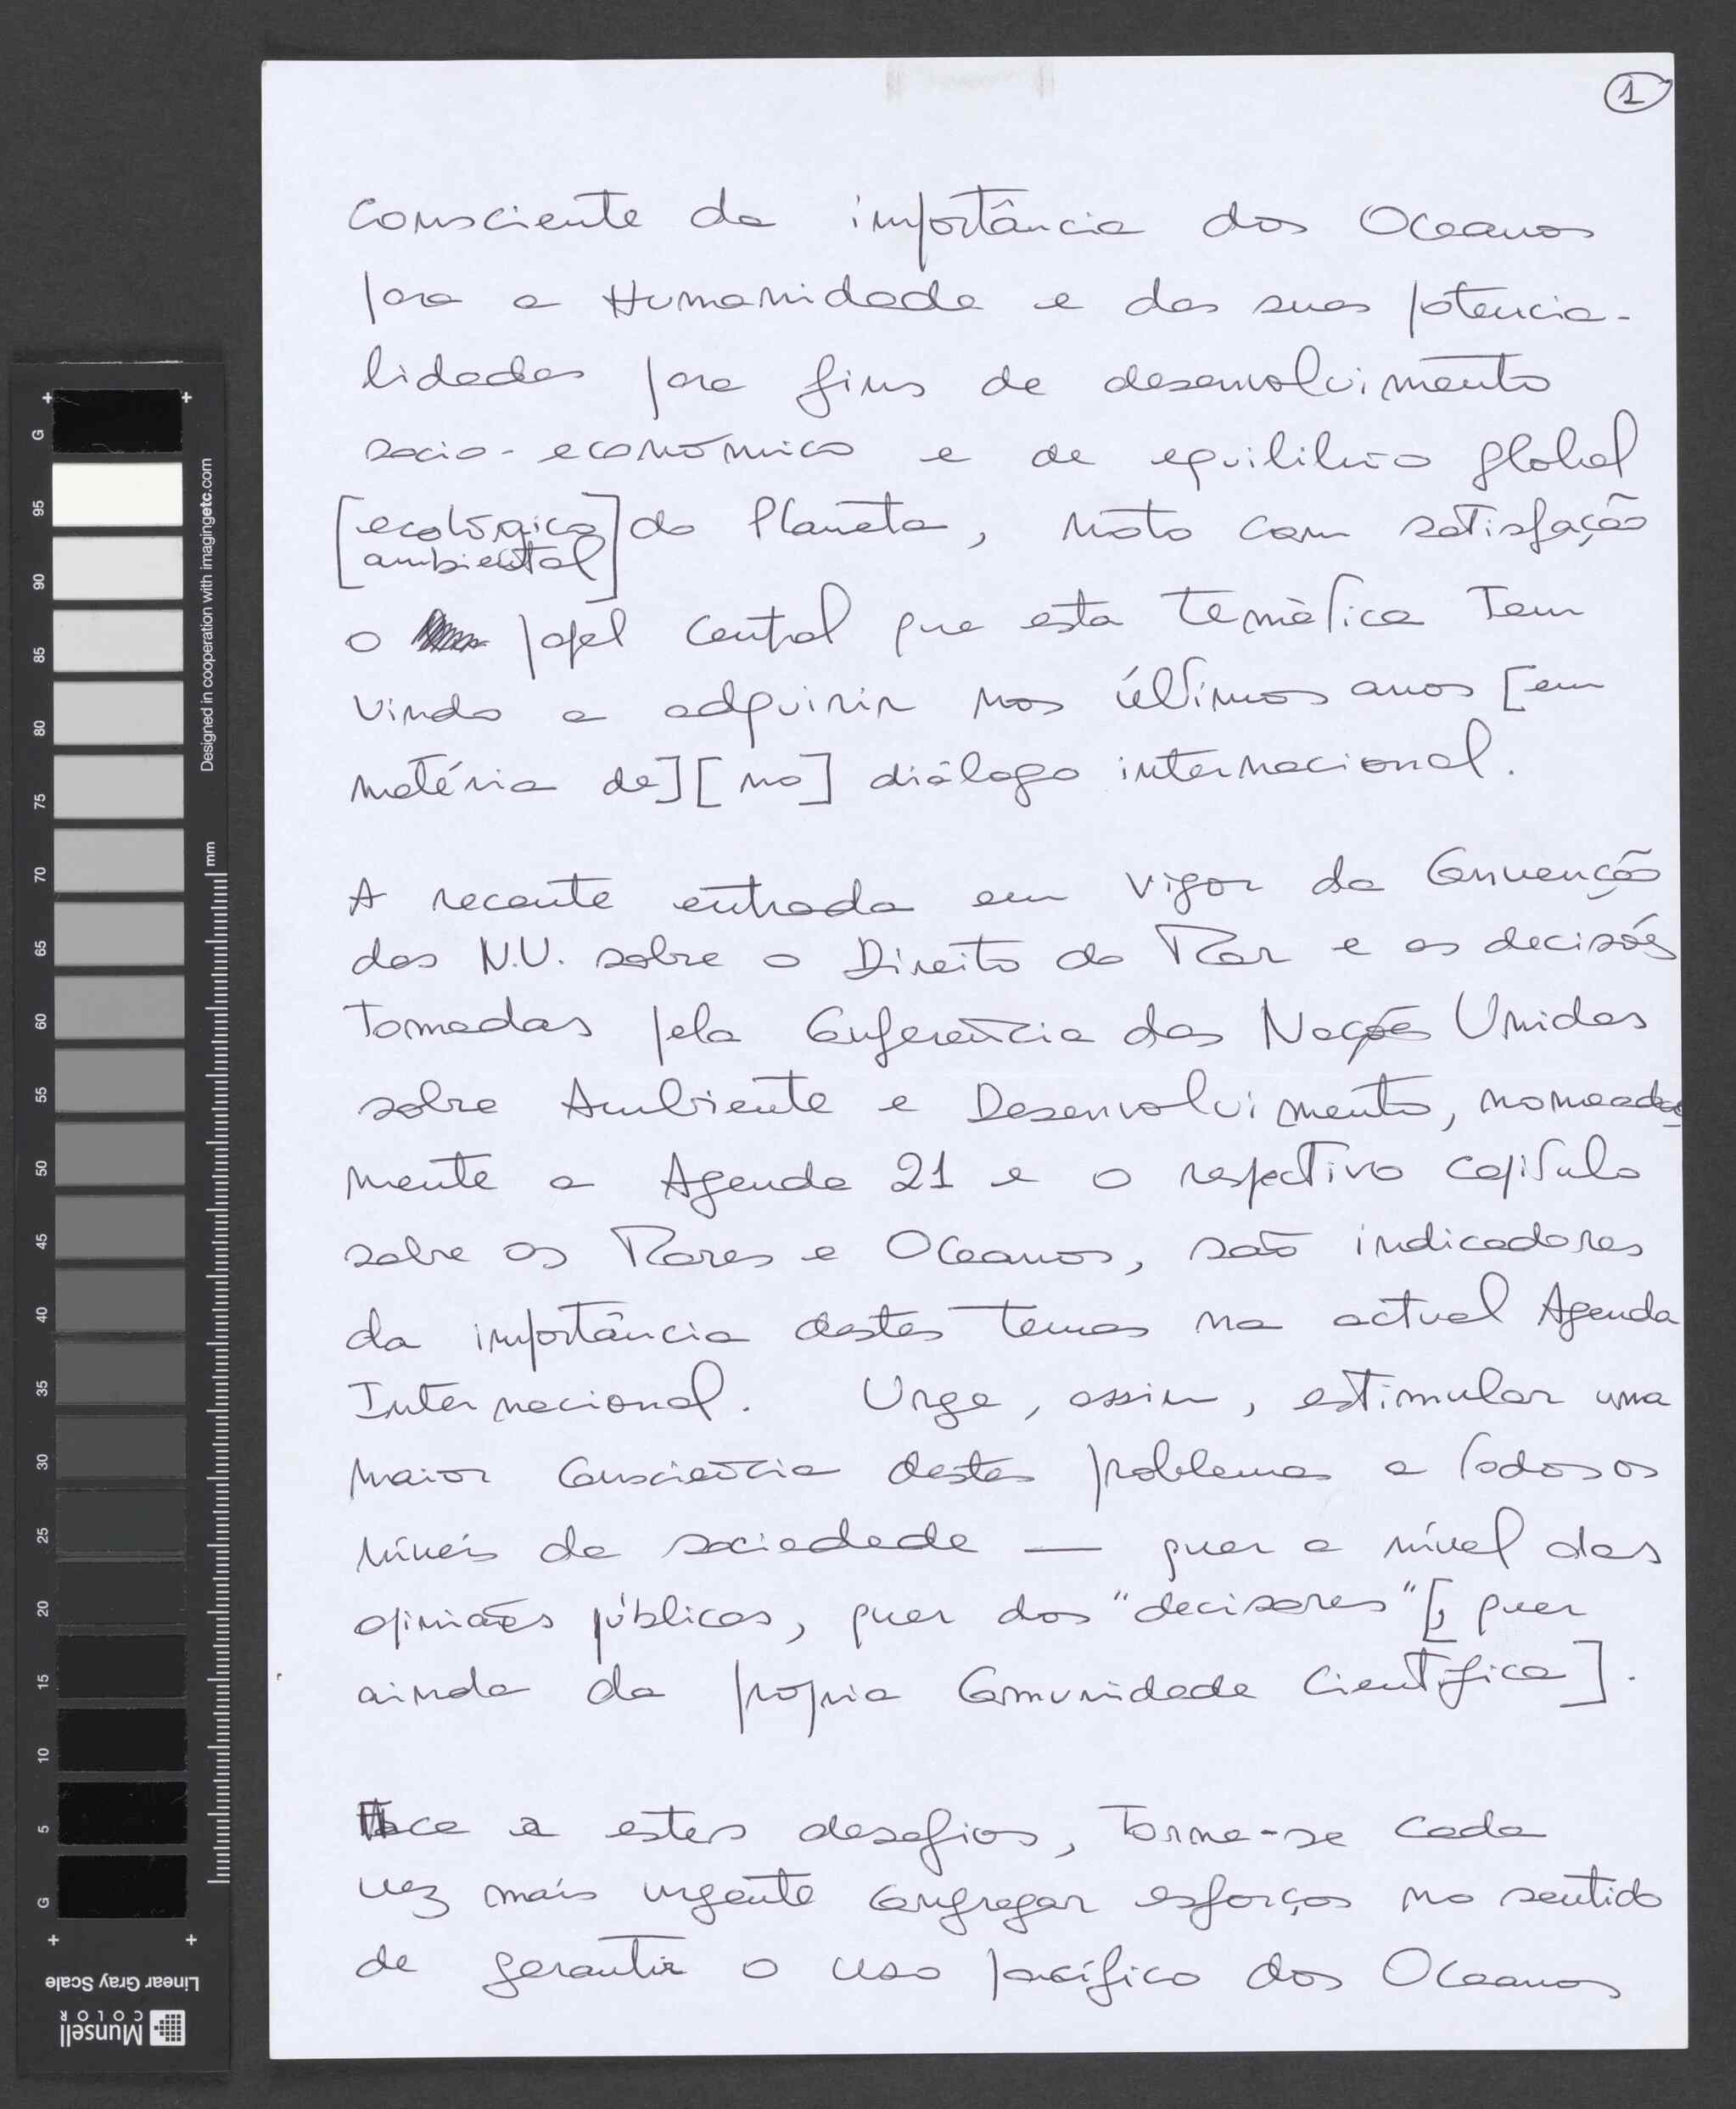 1
Consciente da importância dos Oceanos
para a Humanidade e das suas potencia-
lidades para fins de desenvolvimento
socio-económico e de equilibrio global
[ecológico
ambiental] do Planeta, noto com satisfação
o papel central que esta temática tem
vindo a adquirir nos últimos anos [em
matéria de][no] diálogo internacional.
A recente entrada em vigor da Convenção
das N.U. sobre o Direito do Mar e as decisões
tomadas pela Conferência das Nações Unidas
sobre Ambiente e Desenvolvimento, nomeada-
mente a Agenda 21 e o respectivo capítulo
sobre os Mares e Oceanos, são indicadores
da importância destes temas na actual Agenda
Internacional. Urge, assim, estimular uma
maior consciência destes problemas a todos os
níveis da sociedade — quer a nível das
opiniões públicas, quer dos "decisores"[, quer
ainda da propria Comunidade Científica].
Face a estes desafios, torna-se cada
vez mais urgente congregar esforços no sentido
de garantir o uso pacífico dos Oceanos
G
95
90
85
80
75
70
65
60
55
50
45
40
35
30
25
20
15
10
5
G
Designed in cooperation with imagingetc.com
mm
Linear Gray Scale
Munsell
COLOR